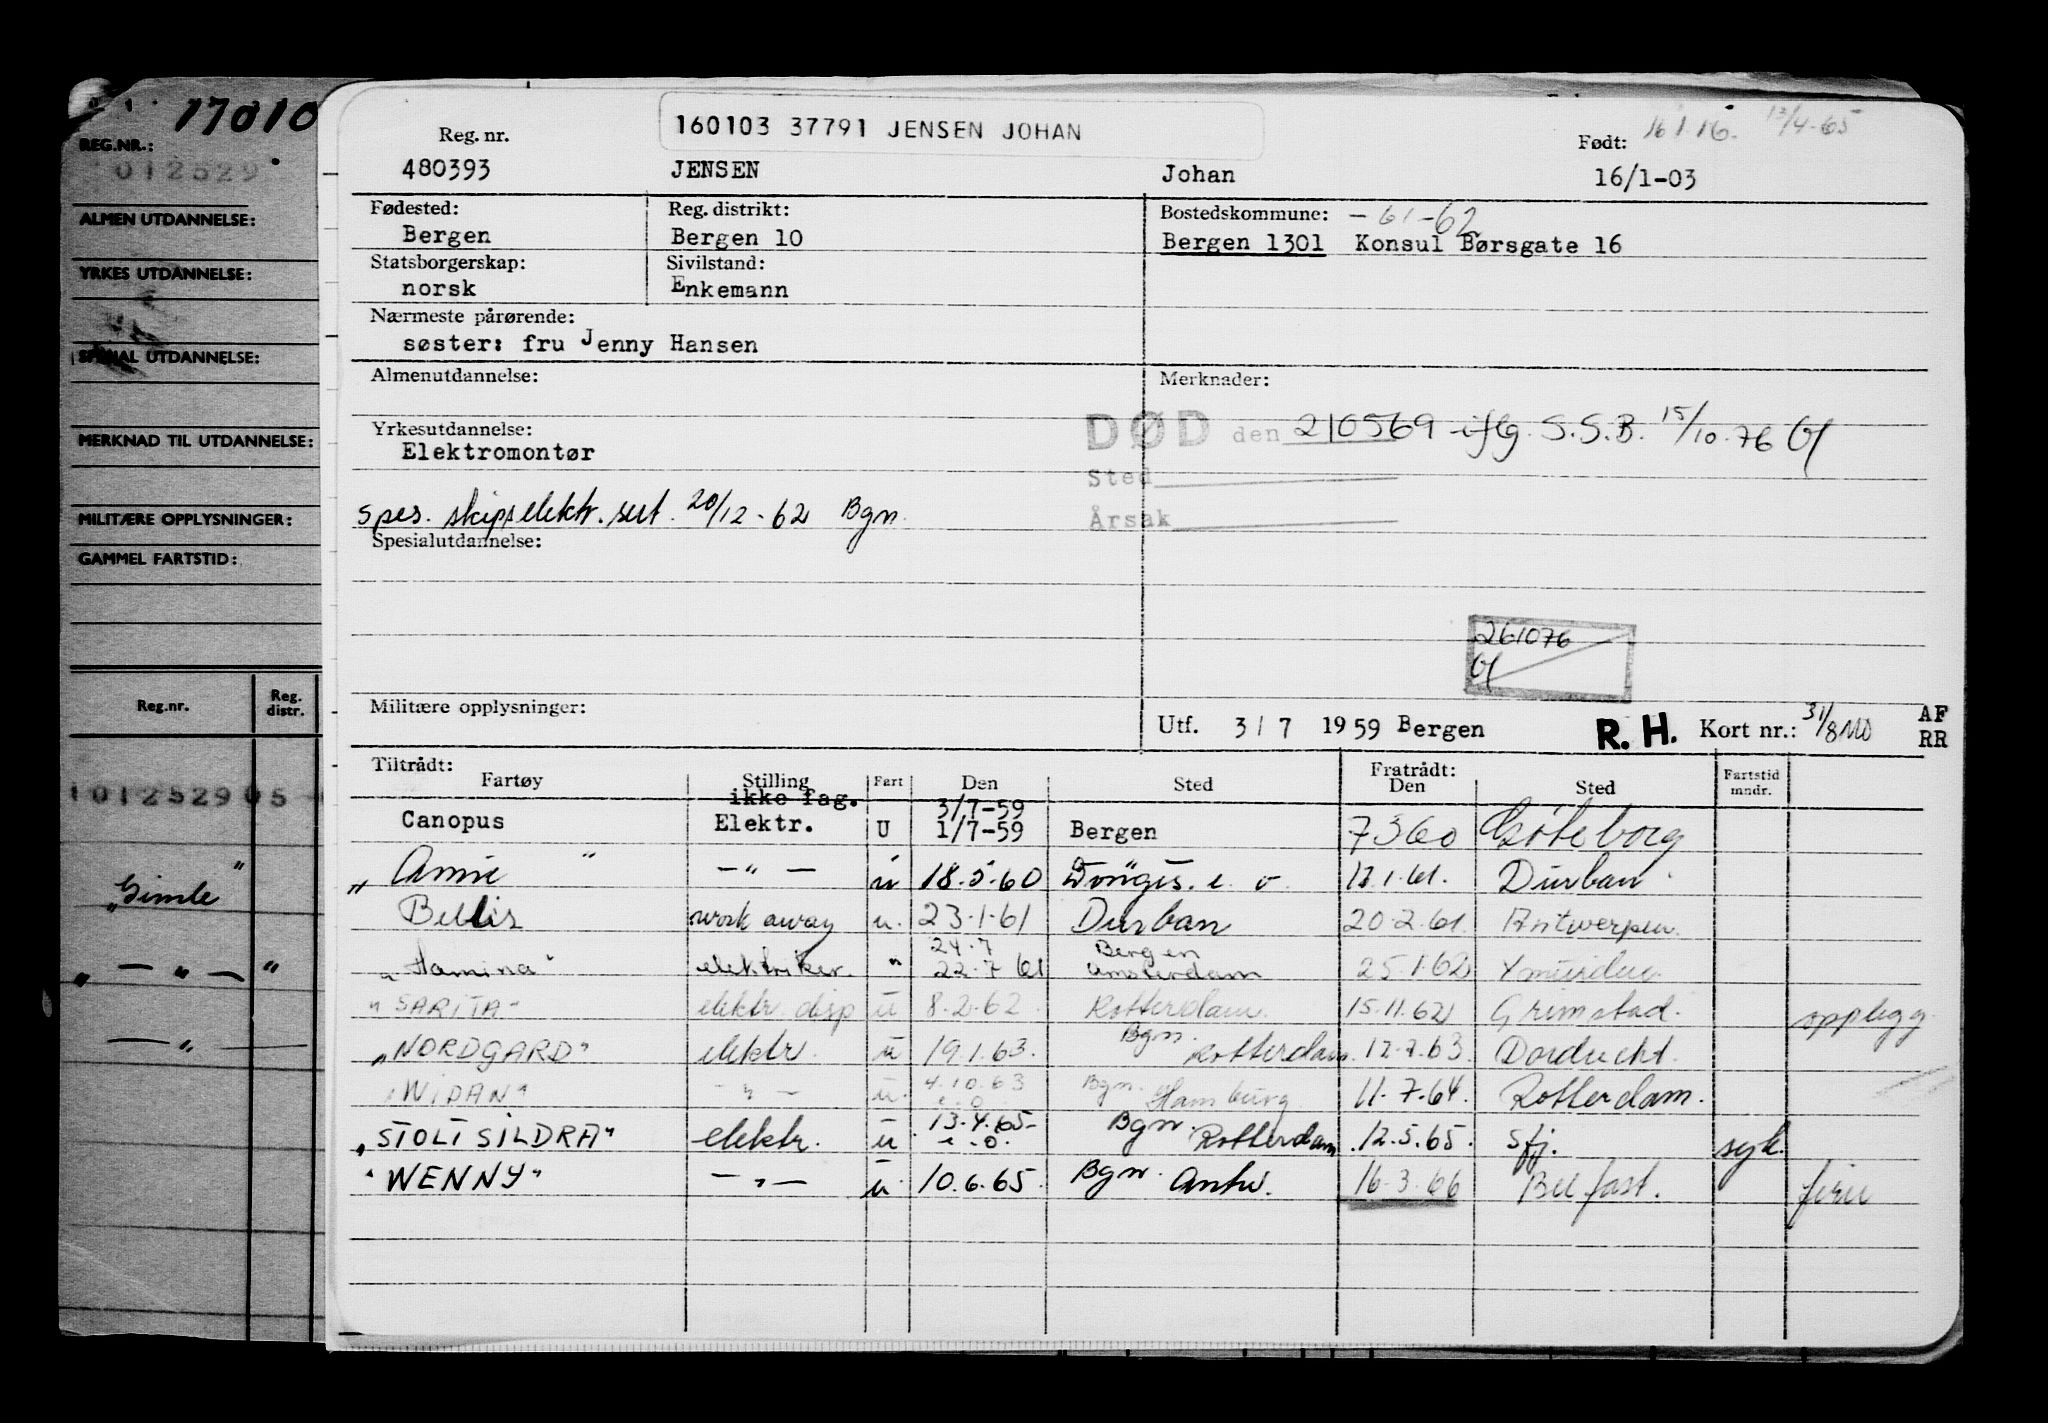 17010
REG.NR.:
012529
ALMEN UTDANNELSE:
YRKES UTDANNELSE:
SPESIAL UTDANNELSE:
MERKNAD TIL UTDANNELSE:
MILITÆRE OPPLYSNINGER:
GAMMEL FARTSTID:
Reg.nr. Reg. distr.
101252905
"Gimle"
" — " — "
— " —
160103 37791 JENSEN JOHAN
16 1 16. 13/4-65
Reg. nr. Født:
480393 JENSEN Johan 16/1-03
Fødested: Reg. distrikt: Bostedskommune: -61-62
Bergen Bergen 10 Bergen 1301 Konsul Børsgate 16
Statsborgerskap: Sivilstand:
norsk Enkemann
Nærmeste pårørende:
søster: fru Jenny Hansen
Almenutdannelse: Merknader:
Yrkesutdannelse: DØD den 210569 iflg. S.S.B. 15/10.76
Elektromontør
Sted
spes. skipselektr. sert. 20/12-62 Bgn.
Årsak
Spesialutdannelse:
261076
Militære opplysninger:
Utf. 3/7 1959 Bergen R. H. Kort nr.: 31/8 AF
RR
Tiltrådt: Fratrådt:
Fartøy Stilling Fart Den Sted Den Sted Fartstid mndr.
ikke fag. 3/7-59
Canopus Elektr. U 1/7-59 Bergen 7360 Göteborg
" Anne " — " — u 18.5.60 e. o. 17.1.61. Durban
Bellis work away u. 23.1.61 Durban 20.2.61. Antwerpen
24.7 Bergen
"Hamina" elektriker " 22.7 61 Amsterdam 25.1.62 Ymuiden
"SARITA" elektr. disp u 8.2.62 Rotterdam 15.11.62 Grimstad. opplegg
"NORDGARD" elektr. u 19.1.63. Bgn. Rotterdam. 12.7.63. Dordrecht.
"WIDAN" — " — u. 4.10.63 e.o. Bgn. Hamburg 11.7.64. Rotterdam.
"STOLT SILDRA" elektr. u 13.4.65- e.o. Bgn. Rotterdam 12.5.65. Sfj. syk.
"WENNY" — " — u 10.6.65. Bgn. Antw. 16.3.66 Belfast. ferie